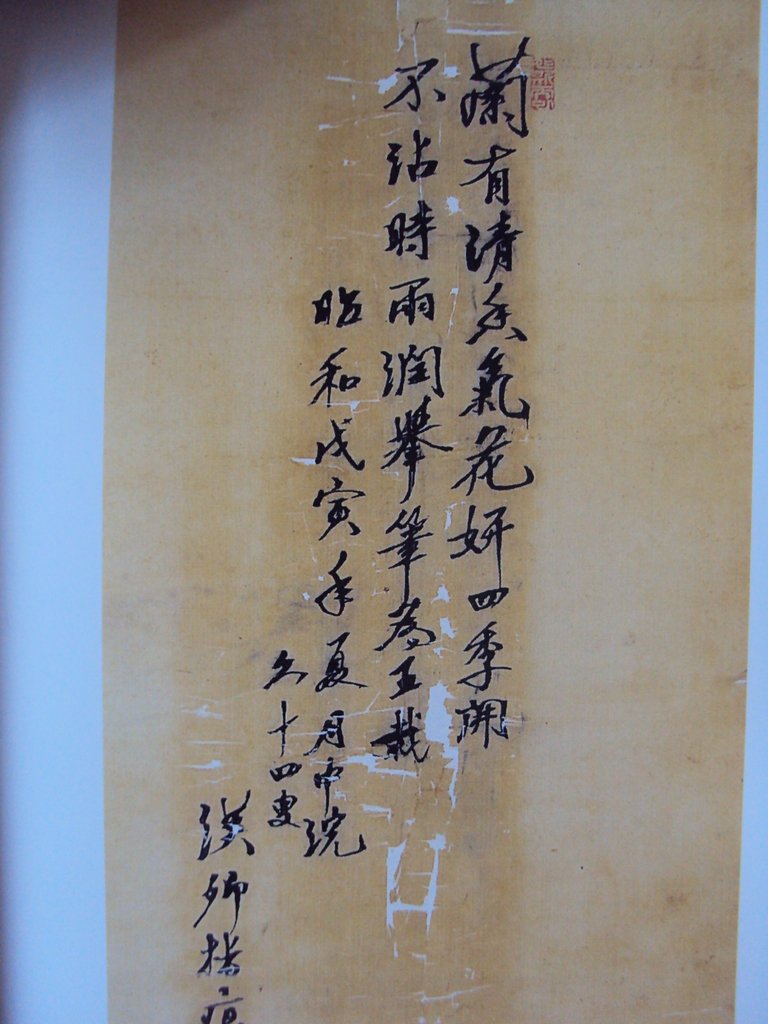 蘭有清香氣花妍四季開
不沾時雨潤舉筆為玉栽
昭和戊寅年夏月中浣
六十四叟
漢卿指痕